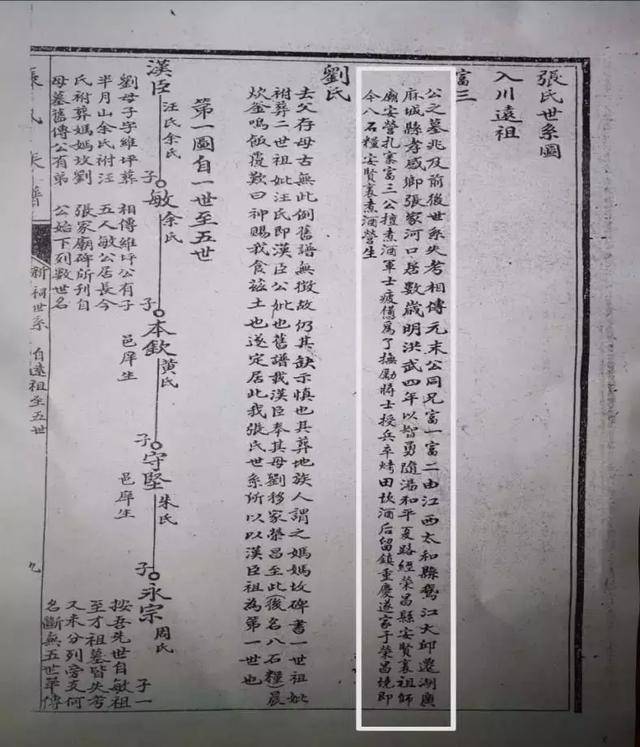 張氏世系圖
入川遠祖
富三
公之墓兆及前後世系失考相傳元末公同兄富一富二由江西太和縣鵝江大邱遷湖廣
麻城縣孝感鄉張家河口居數歲明洪武四年以智勇隨湯和平夏路經榮昌縣安賢里祖師
廟安營扎寨富三公擅煮酒軍士疲憊為了撫勵將士授兵卒烤田坎酒后留鎮重慶遂家于榮昌燒即
今八石糧安賢里煮酒營生
劉氏
去父存母古無此例舊譜無徵故仍其缺示慎也其葬地族人謂之媽媽坟碑書一世祖妣
祔葬二世祖妣汪氏即漢臣公妣也舊譜載漢臣奉其母劉移家榮昌至此(後名八石糧)晨
炊釜鳴飯覆歎曰神賜我食茲土也遂定居此我張氏世系所以以漢臣祖為第一世也
第一圖自一世至五世
漢臣
汪氏余氏
劉母子字維坪葬
半月山余氏祔汪
氏祔葬媽媽坟劉
母墓舊傳公有弟
子
敏
余氏
相傳維坪公有子
五人敏公居長今
張家廟碑所刊自
公始下列數世名
子
本欽
黄氏
邑庠生
子
守堅
朱氏
邑庠生
子
永宗
周氏
子一
按吾先世自敏祖
至才祖墓皆失考
又未分列旁支何
名斷無五世單傳
張氏族譜
新祠世系
自遠祖至五世
九